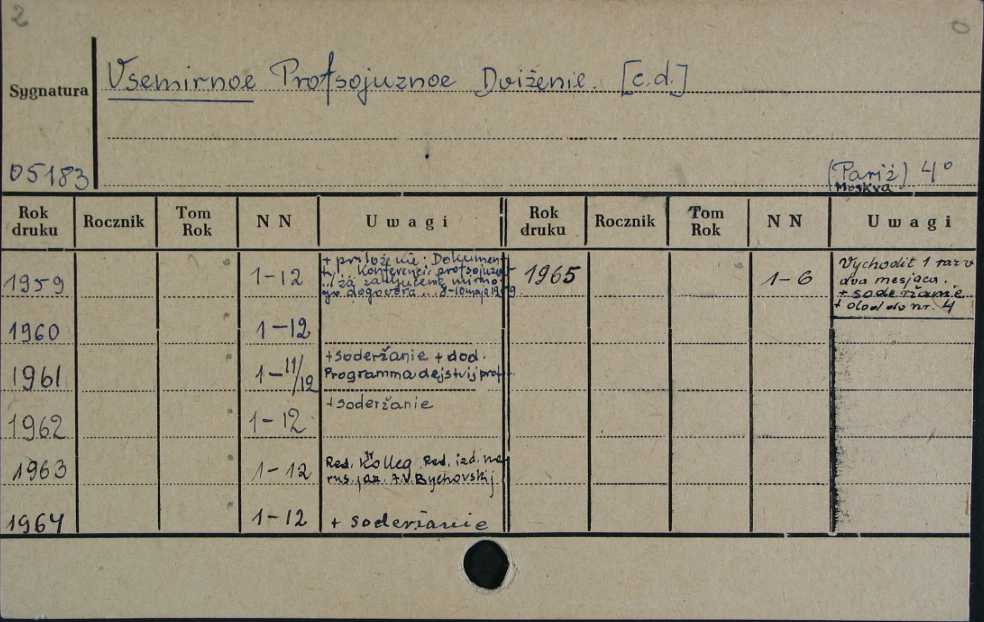 2
0
Vsemirnoe Profsojuznoe Dviženie. [c.d.]
Sygnatura
05183
(Pariž) 4°
Moskva
Rok druku Rocznik Tom Rok NN Uwagi Rok druku Rocznik Tom Rok NN Uwagi
1959 1-12 + priloženie: Dokument
Konferencii profsojuzov
za zaključenie mirno-
go dogovora... 8-10 maja 1959
1965 1-6 Vychodit 1 raz v
dva mesjaca.
+ soderžanie
+ dod do nr. 4
1960 1-12
1961 1-11/12 + soderžanie + dod.
Programma dejstvij prof
1962 1-12 + soderžanie
1963 1-12 Red. Kolleg. Red. izd. na
rus. jaz. A.V. Bychovskij
1964 1-12 + soderžanie